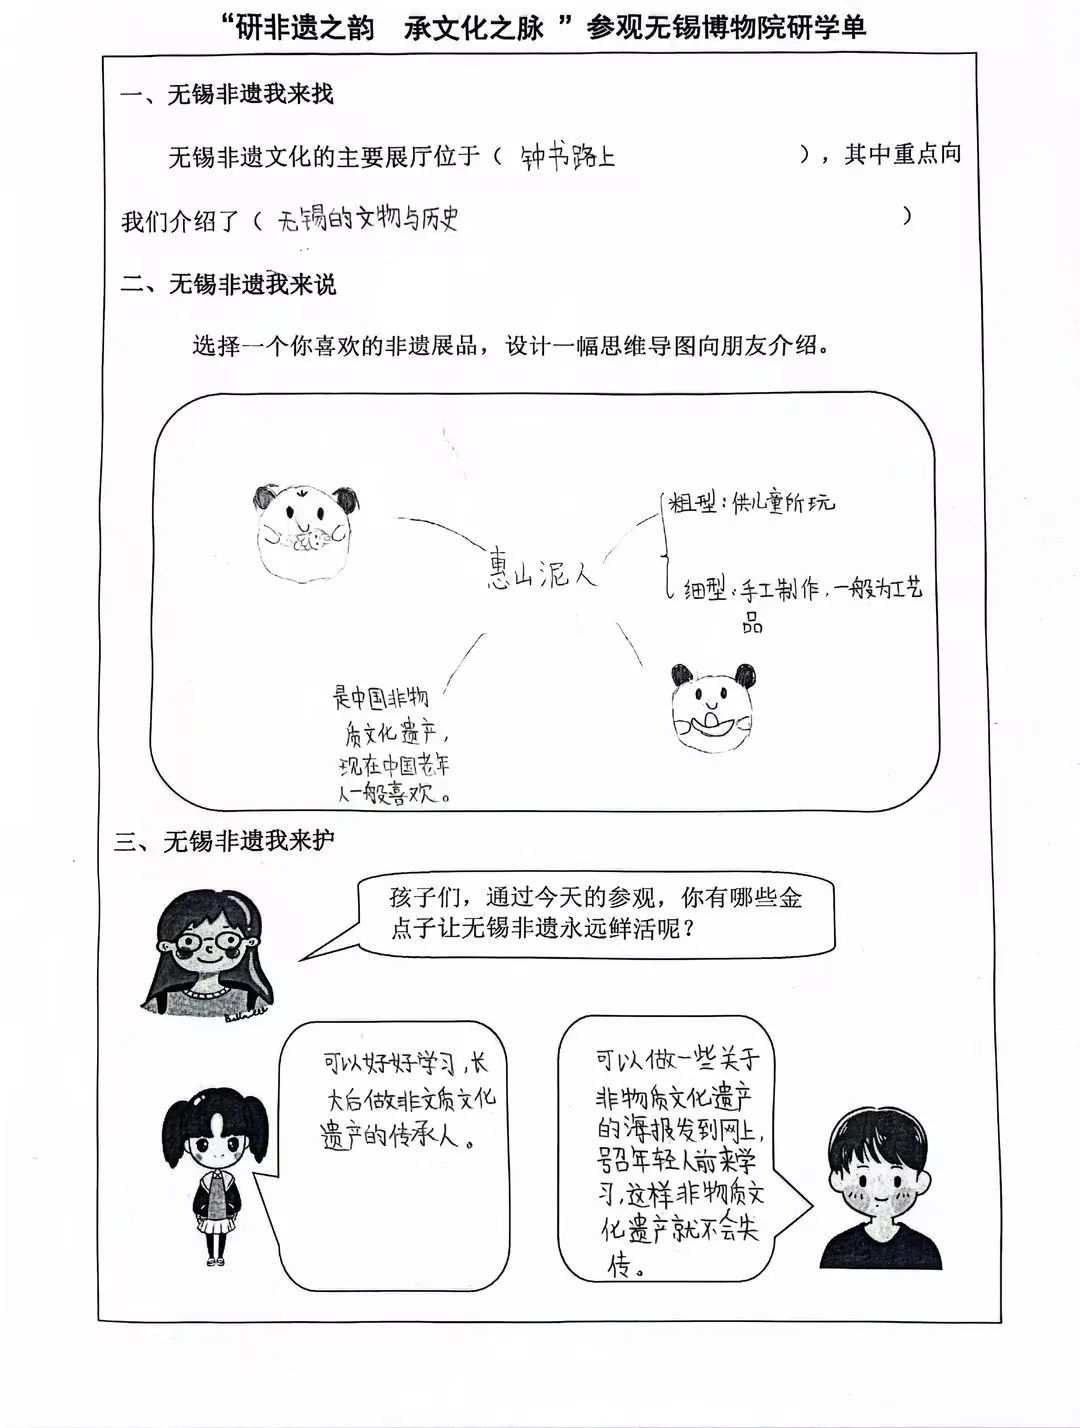 “研非遗之韵　承文化之脉 ”参观无锡博物院研学单
一、无锡非遗我来找
无锡非遗文化的主要展厅位于（ 钟书路上 ），其中重点向
我们介绍了（ 无锡的文物与历史 ）
二、无锡非遗我来说
选择一个你喜欢的非遗展品，设计一幅思维导图向朋友介绍。
粗型：供儿童所玩
惠山泥人
细型：手工制作，一般为工艺
品
是中国非物
质文化遗产，
现在中国老年
人一般喜欢。
三、无锡非遗我来护
孩子们，通过今天的参观，你有哪些金
点子让无锡非遗永远鲜活呢？
可以好好学习，长
大后做非文质文化
遗产的传承人。
可以做一些关于
非物质文化遗产
的海报发到网上，
号召年轻人前来学
习，这样非物质文
化遗产就不会失
传。